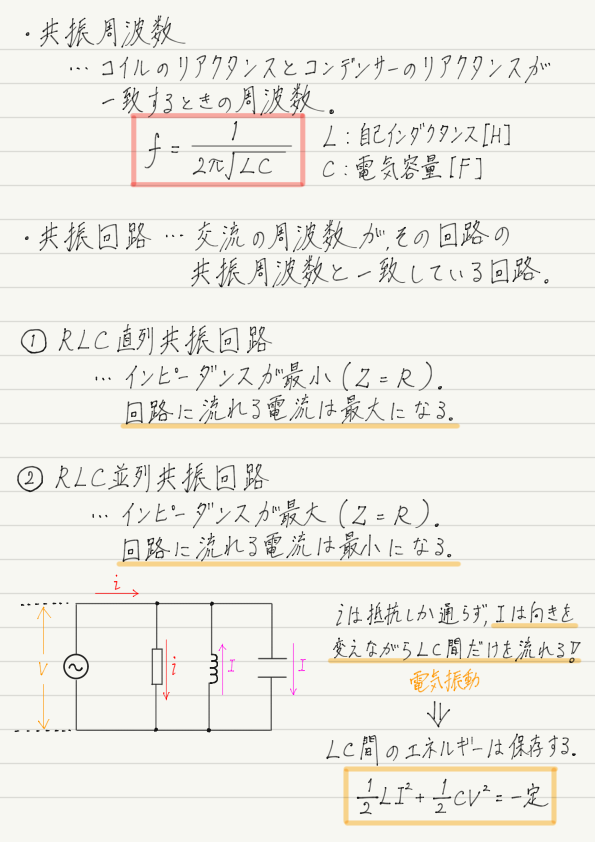 ・共振周波数
… コイルのリアクタンスとコンデンサーのリアクタンスが
一致するときの周波数。
f = 1/(2π√LC)
L : 自己インダクタンス [H]
C : 電気容量 [F]
・共振回路 … 交流の周波数が、その回路の
共振周波数と一致している回路。
① RLC直列共振回路
… インピーダンスが最小 (Z = R)。
回路に流れる電流は最大になる。
② RLC並列共振回路
… インピーダンスが最大 (Z = R)。
回路に流れる電流は最小になる。
i
V
i
I
I
iは抵抗しか通らず、Iは向きを
変えながらLC間だけを流れる!!
電気振動
⇓
LC間のエネルギーは保存する。
1/2 LI² + 1/2 CV² = 一定